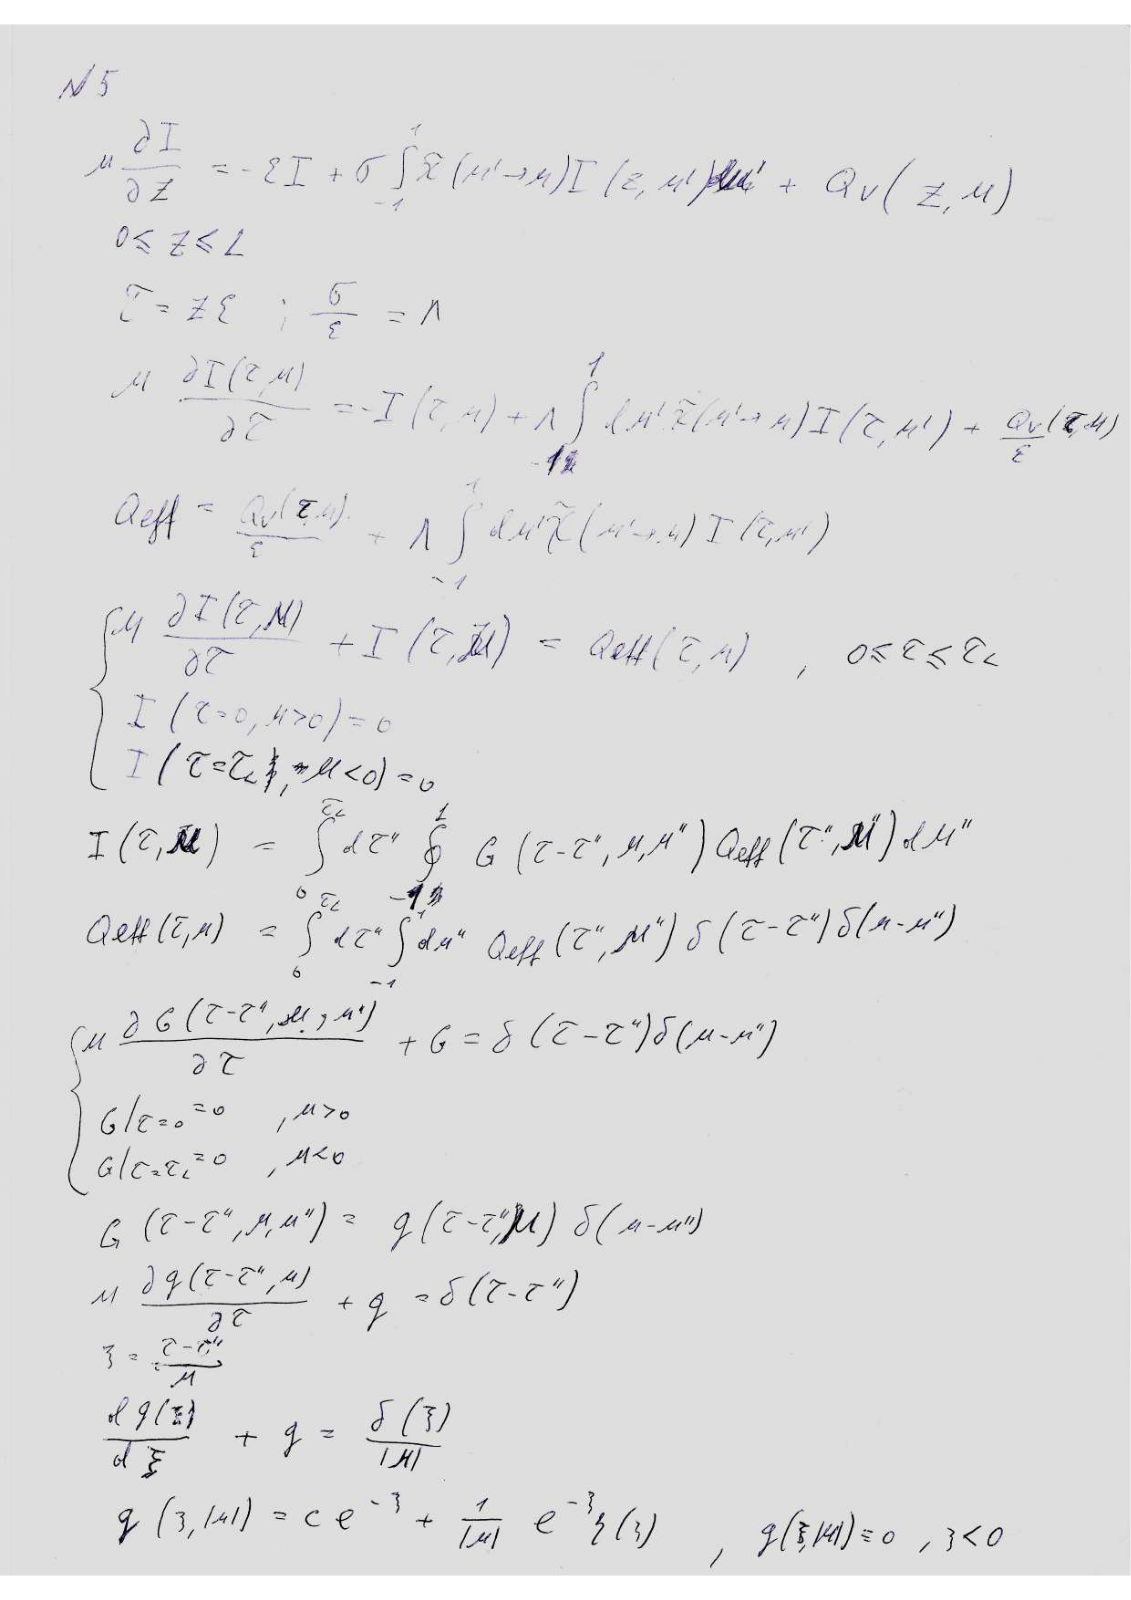 N 5
μ ∂I/∂z = -εI + σ ∫_{-1}^{1} χ̃(μ'→μ) I(z, μ') dμ' + Qv(z, μ)
0 ≤ z ≤ L
τ = zε ; σ/ε = Λ
μ ∂I(τ,μ)/∂τ = -I(τ,μ) + Λ ∫_{-1}^{1} dμ' χ̃(μ'→μ) I(τ,μ') + Qv/ε (τ,μ)
Qeff = Qv(τ,μ)/ε + Λ ∫_{-1}^{1} dμ' χ̃(μ'→μ) I(τ,μ')
{ μ ∂I(τ,μ)/∂τ + I(τ,μ) = Qeff(τ,μ) , 0 ≤ τ ≤ τ_L
I(τ=0, μ>0) = 0
I(τ=τ_L, μ<0) = 0
I(τ,μ) = ∫_{0}^{τ_L} dτ'' ∫_{-1}^{1} G(τ-τ'', μ, μ'') Qeff(τ'', μ'') dμ''
Qeff(τ,μ) = ∫_{0}^{τ_L} dτ'' ∫_{-1}^{1} dμ'' Qeff(τ'', μ'') δ(τ-τ'') δ(μ-μ'')
{ μ ∂G(τ-τ'', μ, μ'')/∂τ + G = δ(τ-τ'') δ(μ-μ'')
G|τ=0 = 0 , μ>0
G|τ=τ_L = 0 , μ<0
G(τ-τ'', μ, μ'') = g(τ-τ'', μ) δ(μ-μ'')
μ ∂g(τ-τ'', μ)/∂τ + g = δ(τ-τ'')
ξ = (τ-τ'')/μ
dg(ξ)/dξ + g = δ(ξ)/|μ|
g(ξ, |μ|) = c e^{-ξ} + 1/|μ| e^{-ξ} η(ξ) , g(ξ, |μ|) = 0 , ξ<0